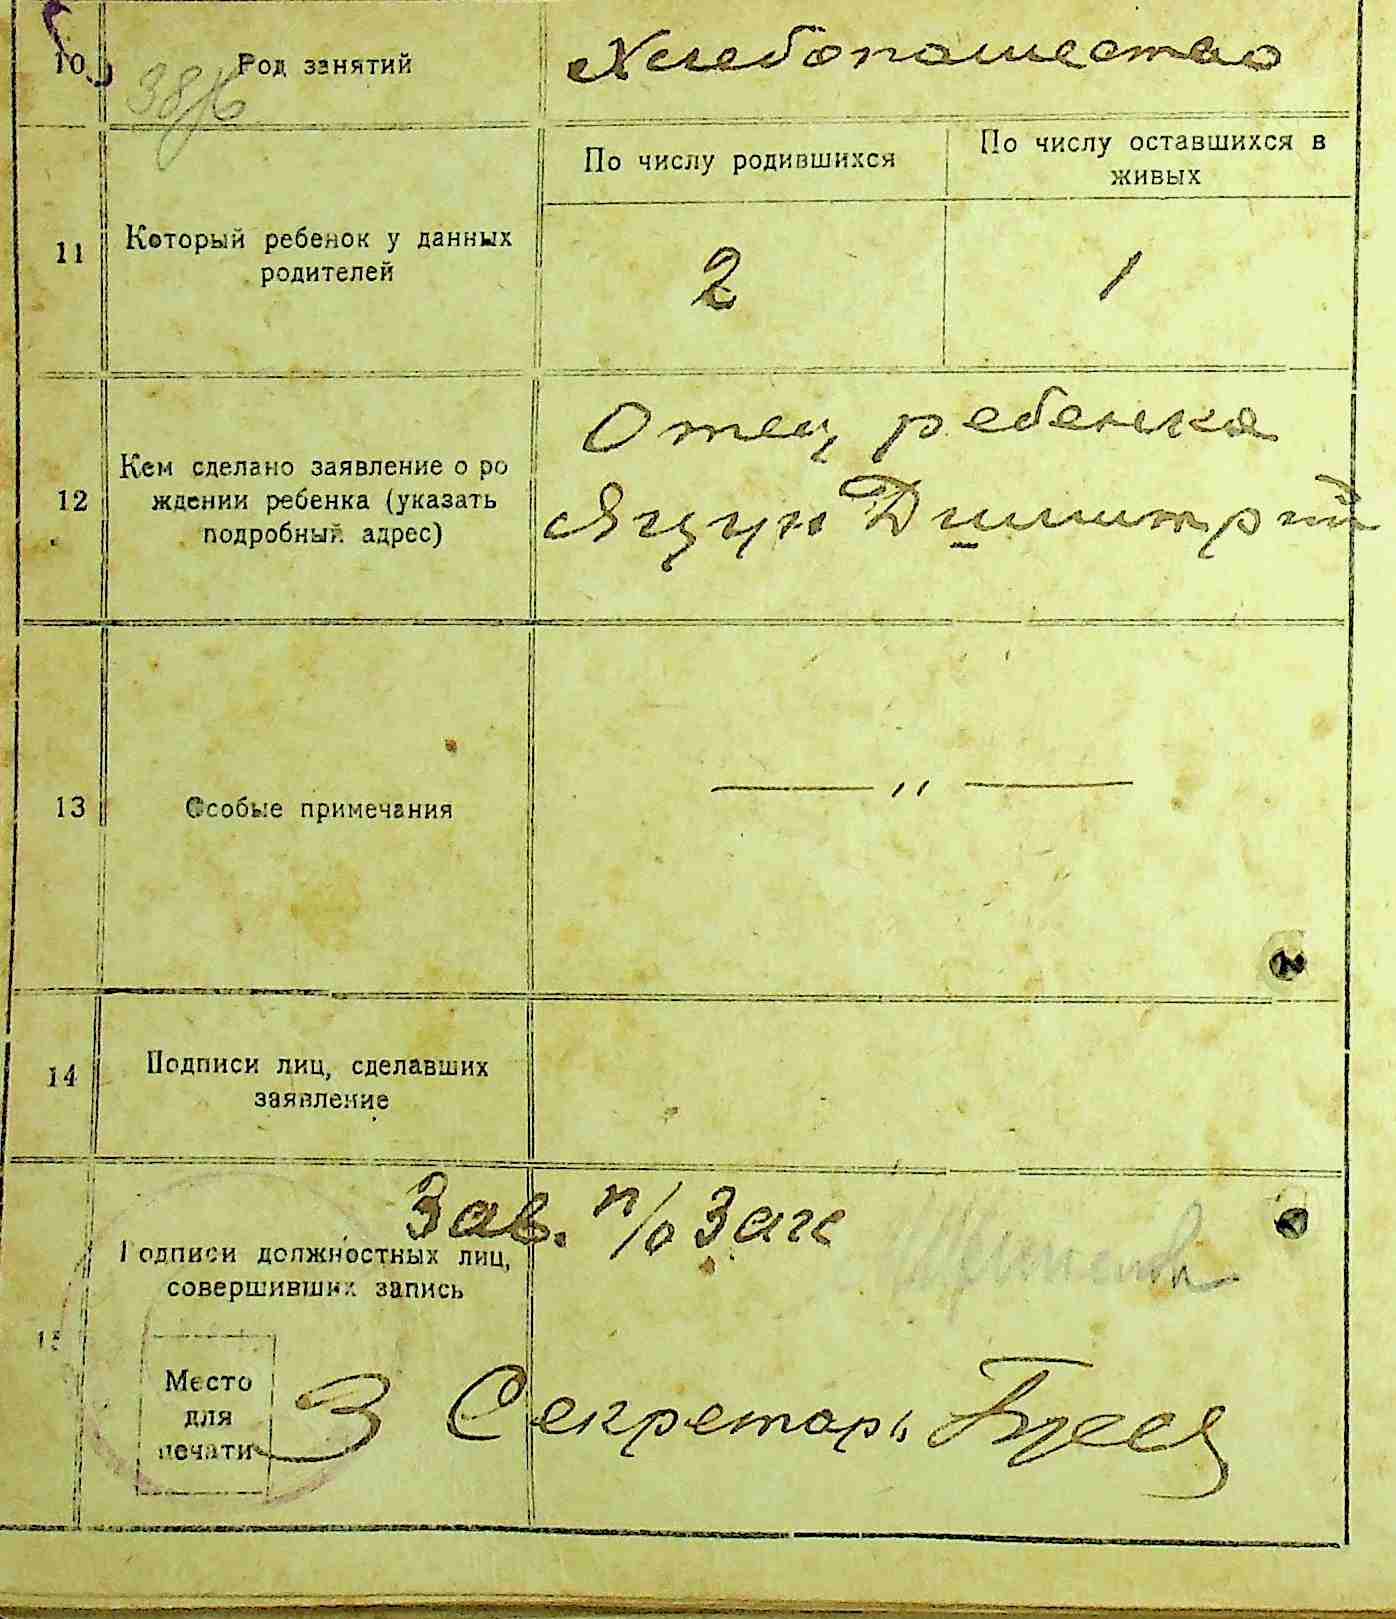 10 Род занятий Хлебопашество
По числу родившихся По числу оставшихся в
живых
11 Который ребенок у данных
родителей
2 1
Отец ребенка
12 Кем сделано заявление о ро
ждении ребенка (указать
подробный адрес)
Яцун Димитрий
13 Особые примечания
— „ —
14 Подписи лиц, сделавших
заявление
Зав. п/о Загс
Подписи должностных лиц,
совершивших запись
15
Место
для
печати
З Секретарь